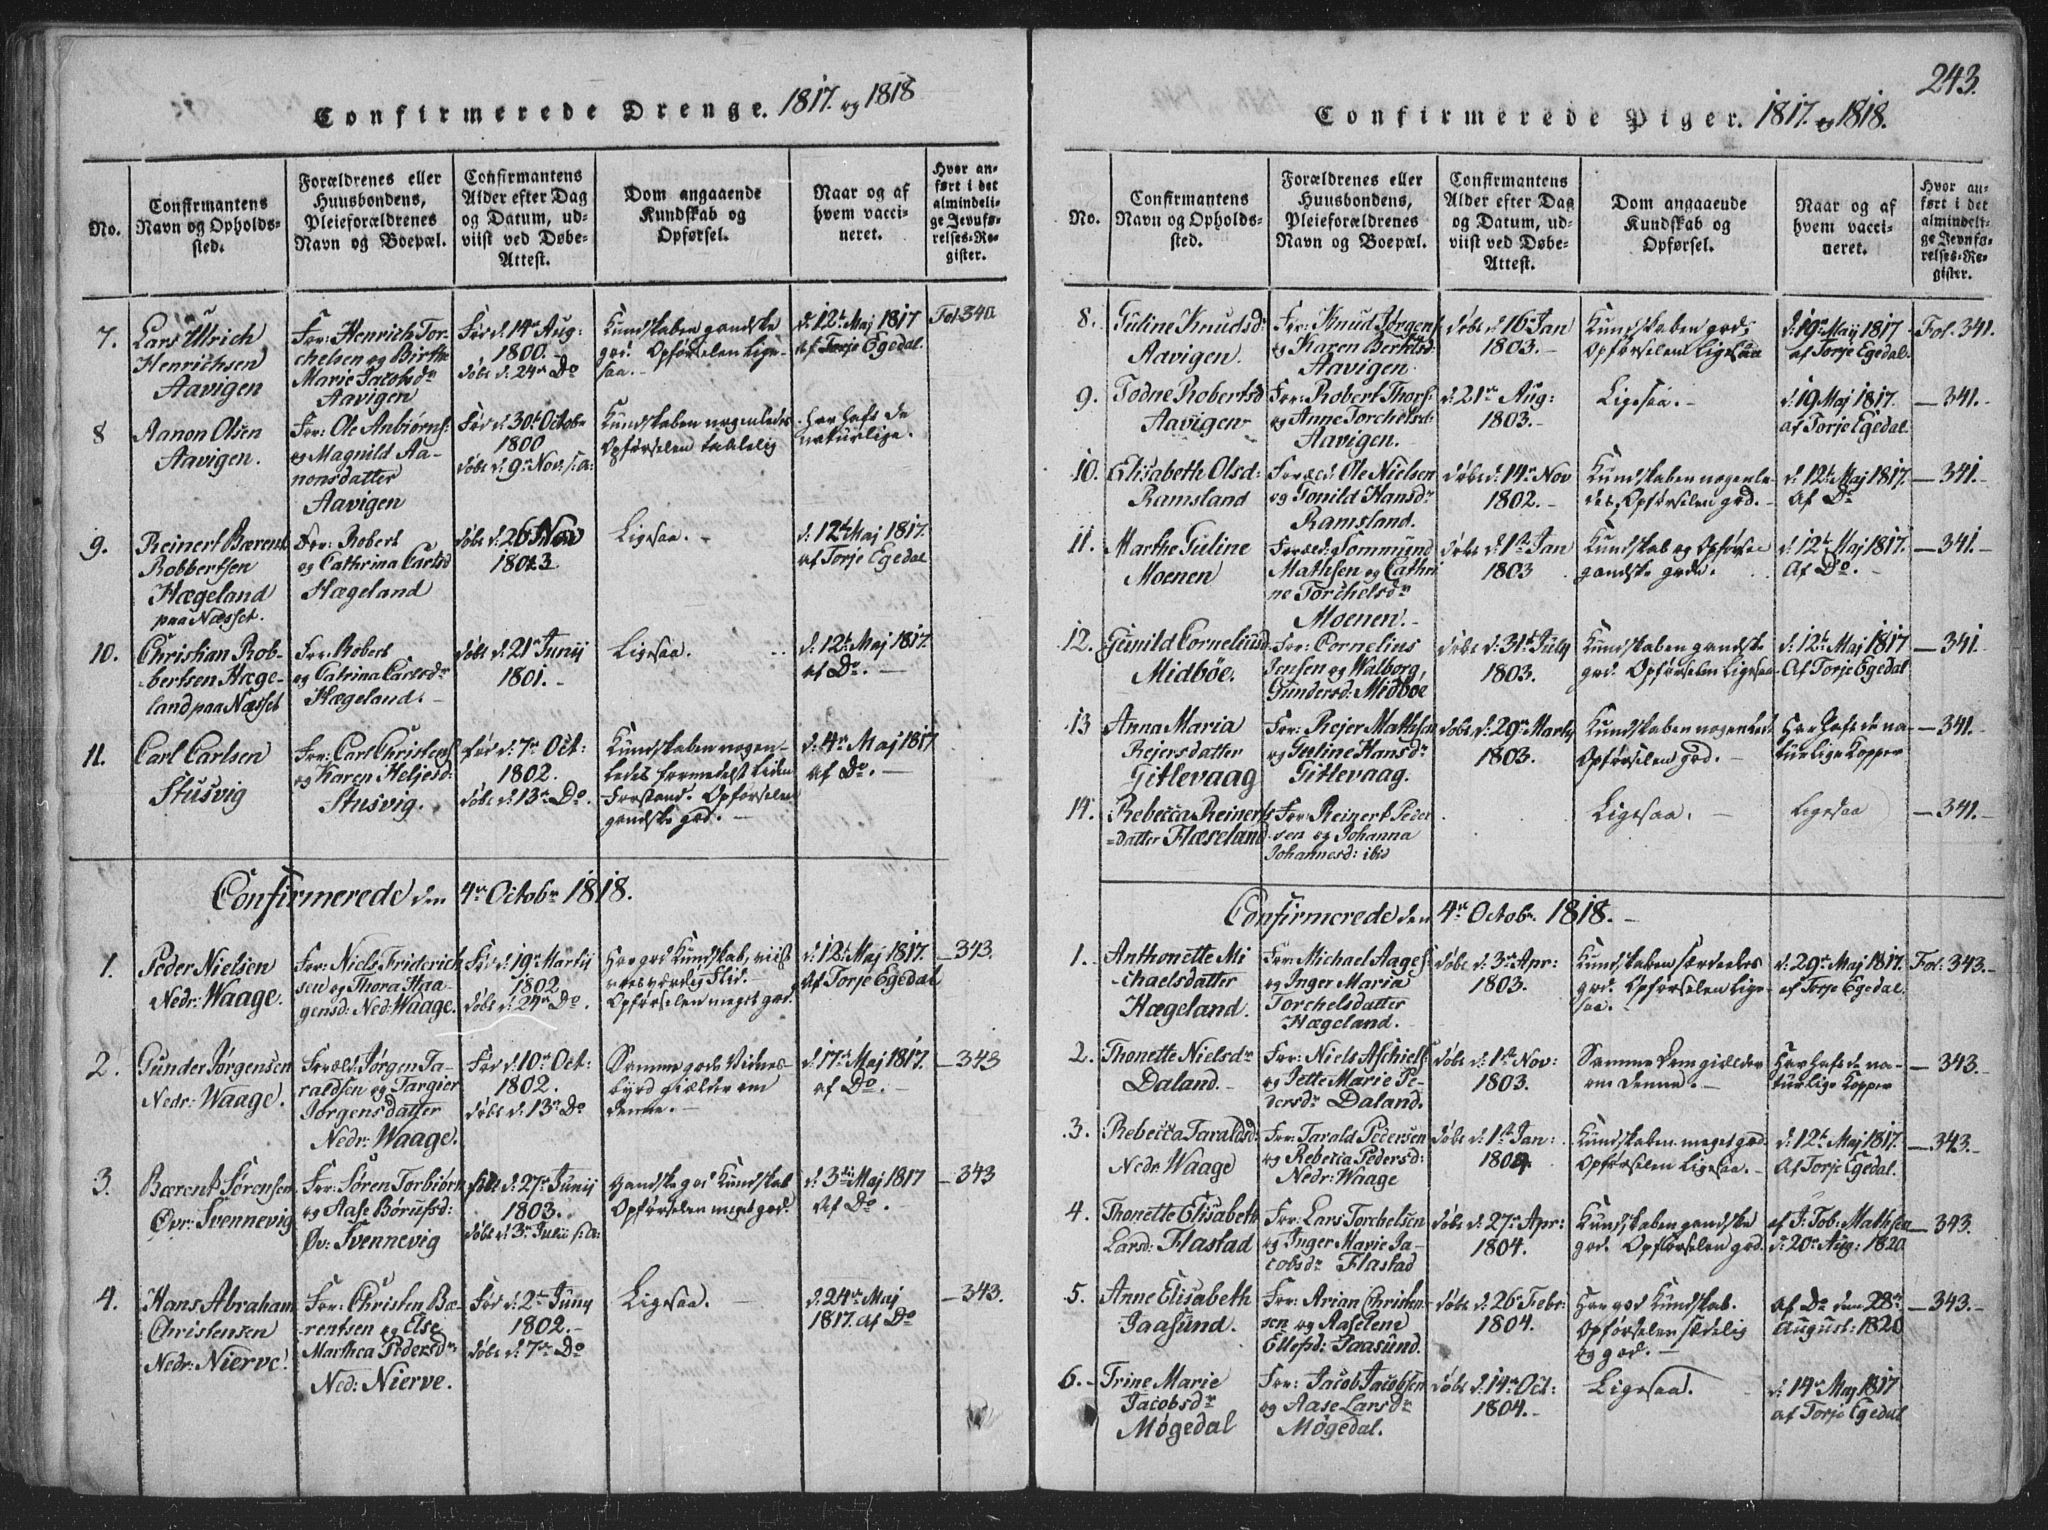 Confirmerede Drenge. 1817. og 1818
No.
Confirmantens
Navn og Opholds-
sted.
Forældrenes eller
Huusbondens,
Pleieforældrenes
Navn og Boepæl.
Confirmantens
Alder efter Dag
og Datum, ud-
viist ved Døbe-
Attest.
Dom angaaende
Kundskab og
Opførsel.
Naar og af
hvem vacci-
neret.
Hvor an-
ført i det
almindeli-
ge Jevnfø-
relses-Re-
gister.
7.
Lars Ulrich
Henrichsen
Aavigen
For: Henrich Tor-
chelsen og Birthe
Marie Jacobsdr
Aavigen
Fød d: 14de Aug:
1800.-
døbt d: 24de Do
Kundskaben gandske
god. Opførselen lige-
saa.
d: 12te Maj 1817
af Torje Egedal.
Fol 340
8
Aanon Olsen
Aavigen.
For: Ole Anbiørns:
og Magnild Aa-
nonsdatter
Aavigen
Fød d: 30te Octobr
1800
døbt d: 9de Nov: s:a:
Kundskaben nogenledes
Opførselen taalelig
Har haft de
naturlige.
9.
Reinert Bærent
Robbertsen
Hægeland
paa Næsset.
For: Robert
og Cathrina Carlsd
Hægeland
døbt d: 26 Nov
1803
Ligesaa. -
d: 12te Maj 1817.
af Torje Egedal
10.
Christian Rob-
bertsen Hæge-
land paa Næsset
For: Robert
og Catrina Carlsdr
Hægeland.
døbt d: 21de Junij
1801.-
Ligesaa.
d: 12te Maj 1817.
af Do. -
11.
Carl Carlsen
Stusvig
For: Carl Christens:
og Karen Heljesd:
Stusvig.
født d: 7de Oct:
1802.
døbt d: 13de Do.
Kundskaben nogen-
ledes formedelst liden
Forstand. Opførselen
gandske god. -
d: 4de Maj 1817
af Do. -
Confirmerede den 4de Octobr 1818.
1.
Peder Nielsen
Nedr: Waage.
For: Niels Friderich
sen og Thora Haa-
gensd: Ned: Waage.
Fød d: 19de Martij
1802
døbt d: 24de Do.
Har god Kundskab, viist
roesværdig Flid.
Opførselen meget god.
d: 12te Maj 1817.
af Torje Egedal
343.
2.
Gunder Jørgensen
Nedr: Waage.
Foræld: Jørgen Ta-
raldsen og Targier
Jørgensdatter
Nedr: Waage.
Fød d: 10de Oct:
1802.
døbt d: 13de Do
Samme gode Vidnes-
byrd gielder om
denne. -
d: 17de Maj 1817.
af Do. -
343
3.
Bærent Sørensen
Øvr: Svennevig
For: Søren Torbiørns
og Aase Børufsd:
Øv: Svennevig
født d: 27de Junij
1803.
døbt d: 3de Julii s:a:
Gandske god Kundskab
Opførselen meget god.
d: 3die Maj 1817
af Do. -
343
4.
Hans Abraham
Christensen
Nedr: Nierve.
For: Christen Ba-
rentsen og Else
Marthea Pedersdr
Ned: Nierve.
Fød d: 2den Juny
1802. -
døbt d: 7de Do
Ligesaa. -
d: 24de Maj
1817. af Do
343.
243.
Confirmerede Piger. 1817. og 1818.
No.
Confirmantens
Navn og Opholds-
sted.
Forældrenes eller
Huusbondens,
Pleieforældrenes
Navn og Boepæl.
Confirmantens
Alder efter Dag
og Datum, ud-
viist ved Døbe-
Attest.
Dom angaaende
Kundskab og
Opførsel.
Naar og af
hvem vacci-
neret.
Hvor an-
ført i det
almindeli-
ge Jevnfø-
relses-Re-
gister.
8.
Guline Knudsd:
Aavigen.
For: Knud Jørgens:
og Karen Berthsd:
Aavigen.
døbt d: 16 Jan
1803. -
Kundskaben god,
Opførselen ligesaa
d: 19de Maij 1817
af Torje Egedal.
Fol. 341.
9.
Todne Robertsd
Aavigen
For: Robert Thors:
og Anne Torchelsd:
Aavigen.
d: 21de Aug:
1803. -
Ligesaa. -
d: 19 Maj 1817.
af Torje Egedal.
- 341.
10.
Elisabeth Olsd:
Ramsland
Foræld: Ole Nielsen
og Gonild Hansdr
Ramsland.
døbt d: 14de Nov
1802. -
Kundskaben nogenle-
des, Opførselen god. -
d: 12te Maj 1817.
af Do
- 341. -
11.
Marthe Guline
Moenen
Foræld: Tommund
Mathsen og Cathri
ne Torchelsdr
Moenen. -
døbt d: 1ste Jan
1803
Kundskab og Opførsel
gandske gode.
d: 12te Maj 1817.
af Do. -
- 341. -
12.
Gunild Cornelius d
Midbøe.
For: Cornelius
Jensen og Walborg,
Gundersd: Midbøe
døbt d: 31te July
1803.
Kundskaben gandske
god. Opførselen ligesaa
d: 12te Maj 1817
Af Torje Egedal
- 341.
13
Anna Maria
Rejersdatter
Gitlevaag
For: Rejer Mathsen
og Guline Hansdr
Gitlevaag.
døbt d: 29de Martij
1803. -
Kundskaben nogenled:
Opførselen god. -
Har haft de na-
turlige Kopper
- 341.
14.
Rebecca Reinerts
=datter Flæseland
For: Reinert Peder
sen og Johanna
Johannesd: ibid
Ligesaa. -
Ligesaa
- 341. -
Confirmerede den 4de Octobr. 1818. -
1.
Anthonette Mi
chaelsdatter
Hægeland.
For: Michael Aages:
og Inger Maria
Torchelsdatter
Hægeland.
døbt d: 3de Apr:
1803.
Kundskaben særdeeles
god. Opførselen lige-
saa. -
d: 29de Maj 1817.
af Torje Egedal.
Fol. 343. -
2.
Thonette Nielsdr
Daland. -
For: Niels Aschiels:
og Jette Marie Pe-
dersdr Daland.
døbt d: 1ste Nov:
1803.
Samme Dom gielder
om denne. -
Har haft de na-
turlige Kopper
- 343. -
3.
Rebecca Taraldsd:
Nedr: Waage
For: Tarald Pedersen
og Rebecca Pedersd:
Nedr: Waage
døbt d: 1ste Jan:
1804.
Kundskaben meget god.
Opførselen ligesaa. -
d: 12te Maj 1817.
Af Torje Egedal.
- 343. -
4.
Thonette Elisabeth
Larsd: Flastad
For: Lars Torchelsen
og Inger Marie Ja-
cobsdr Flastad
døbt d: 27de Apr:
1804.
Kundskaben gandske
god. Opførselen god.
af J: Tob: Mathsen
d: 20de Aug: 1820
- 343.
5.
Anne Elisabeth
Jaasund.
For: Arian Christen-
sen og Aaselene
Ellefsd: Jaasund.
døbt d: 26de Febr:
1804. -
Har god Kundskab.
Opførselen sædelig
og god. -
af Do den 28de
August: 1820
- 343. -
6. -
Trine Marie
Jacobsdr
Møgedal
For: Jacob Jacobsen
og Aase Larsdr
Møgedal.
døbt d: 14de Oct:
1804. -
Ligesaa.
d: 14de Maj 1817
af Torje Egedal